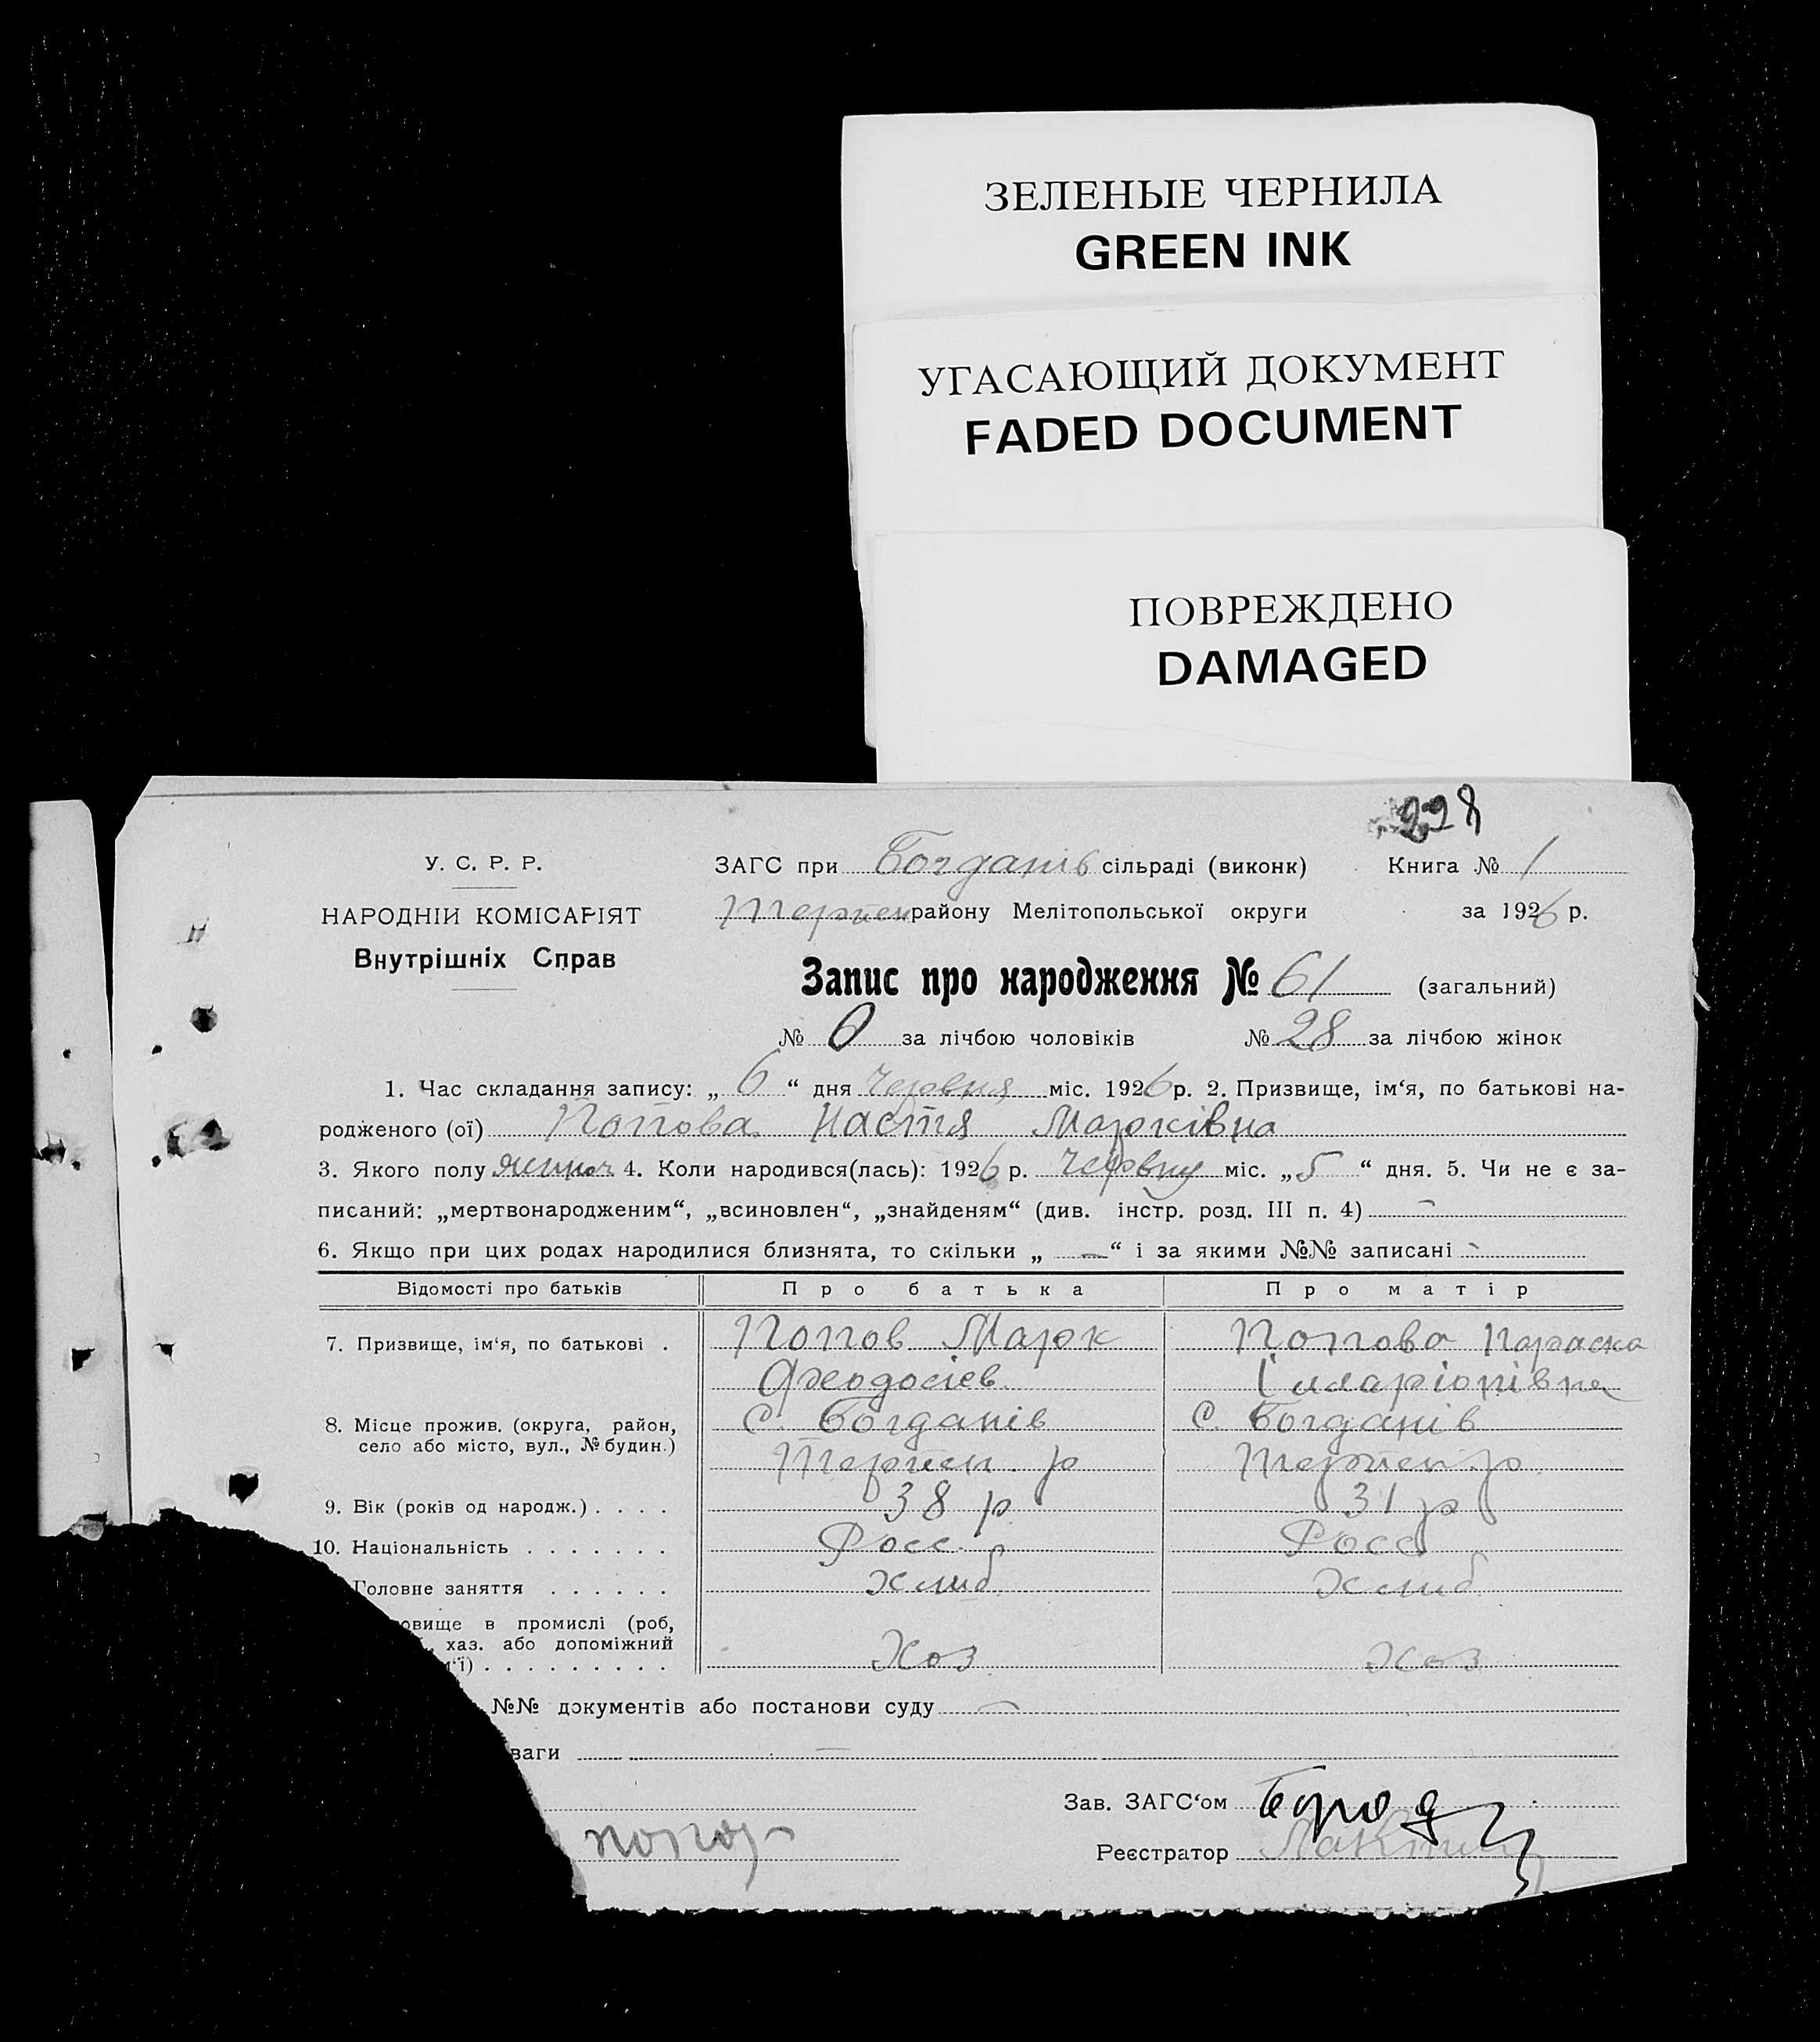 ЗЕЛЕНЫЕ ЧЕРНИЛА
GREEN INK
УГАСАЮЩИЙ ДОКУМЕНТ
FADED DOCUMENT
ПОВРЕЖДЕНО
DAMAGED
228
У. С. Р. Р.
НАРОДНІЙ КОМІСАРІЯТ
Внутрішніх Справ
ЗАГС при Богданів сільраді (виконк) Книга № 1
Терпен району Мелітопольської округи за 1926 р.
Запис про народження № 61 (загальний)
№ 0 за лічбою чоловіків № 28 за лічбою жінок
1. Час складання запису: „ 6 “ дня червня міс. 1926 р. 2. Призвище, ім‘я, по батькові на-
родженого (ої) Попова Настя Марківна
3. Якого полу 4. Коли народився(лась): 1926 р. червня міс. „ 5 “ дня. 5. Чи не є за-
писаний: „мертвонародженим“, „всиновлен“, „знайденям“ (див. інстр. розд. III п. 4) -
6. Якщо при цих родах народилися близнята, то скільки „ — “ і за якими №№ записані -
Відомості про батьків Про батька Про матір
7. Призвище, ім‘я, по батькові . Попов Марк Попова Параска
Феодосієв. Іиларіонівна
8. Місце прожив. (округа, район, с. Богданів с. Богданів
село або місто, вул., № будин.)
Терпен. р Терпен. р.
9. Вік (років од народж.) . . . . 38 р 31 р
10. Національність . . . . . . . Росс. Росс
Головне заняття . . . . . . Хлиб. Хлиб
овище в промислі (роб,
хаз. або допоміжний
м‘ї) . . . . . . . . . Хоз Хоз
№№ документів або постанови суду —
ваги —
Зав. ЗАГС‘ом
попов
Реєстратор